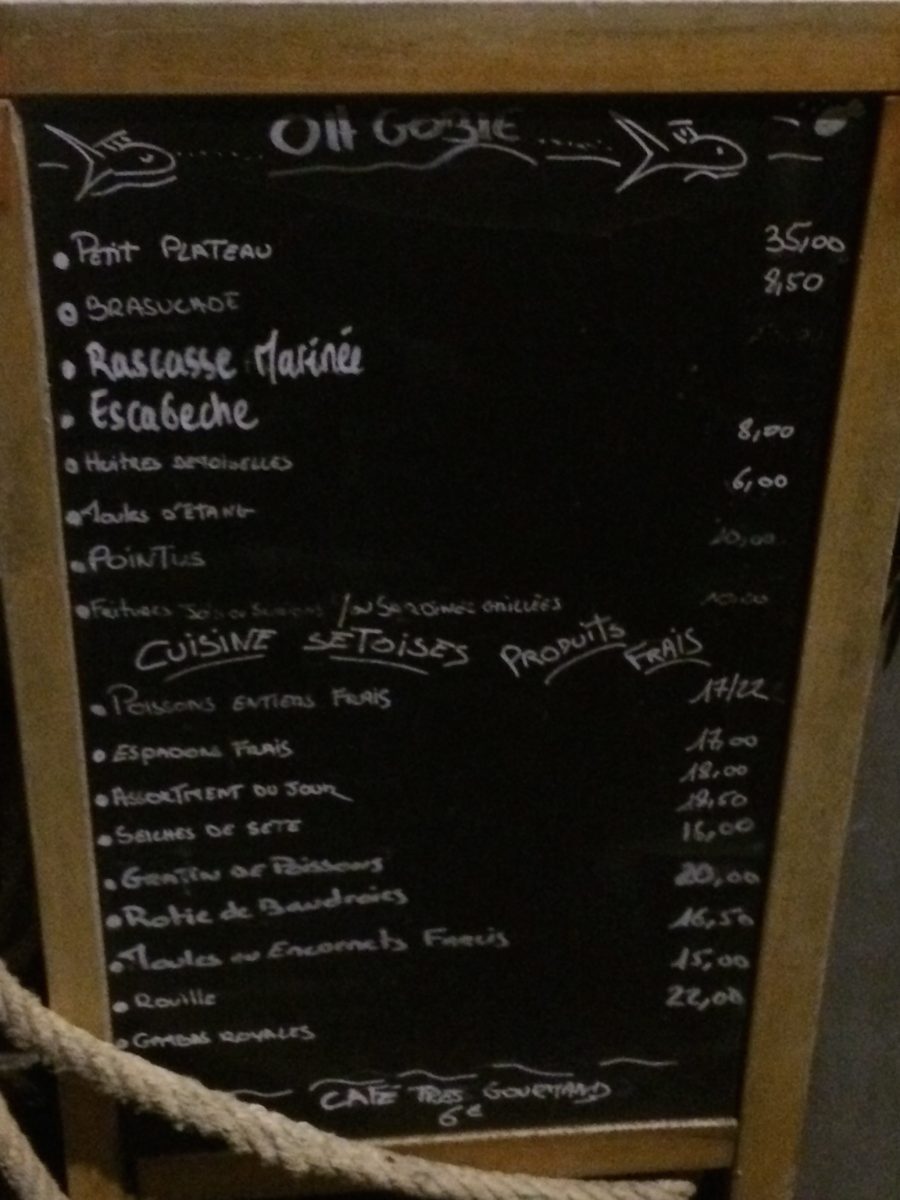 OH GOBIE
• PETIT PLATEAU 35,00
• BRASUCADE 8,50
• Rascasse Marinée
• Escabeche
• HUITRES SETOISELLES 8,00
• Moules D'ETANG 6,00
• POINTUS 10,00
• FRITURES / OU SARDINES GRILLÉES 10,00
CUISINE SETOISES PRODUITS FRAIS
• POISSONS ENTIERS FRAIS 17/22
• ESPADONS FRAIS 17,00
• ASSORTMENT DU JOUR 18,00
• SEICHES DE SETE 18,50
• GRATIN DE POISSONS 16,00
• Rotie de Baudroies 20,00
• Moules ou Encornets Farcis 16,50
• Rouille 15,00
• GAMBAS ROYALES 22,00
CAFÉ TRES GOURMAND
6€